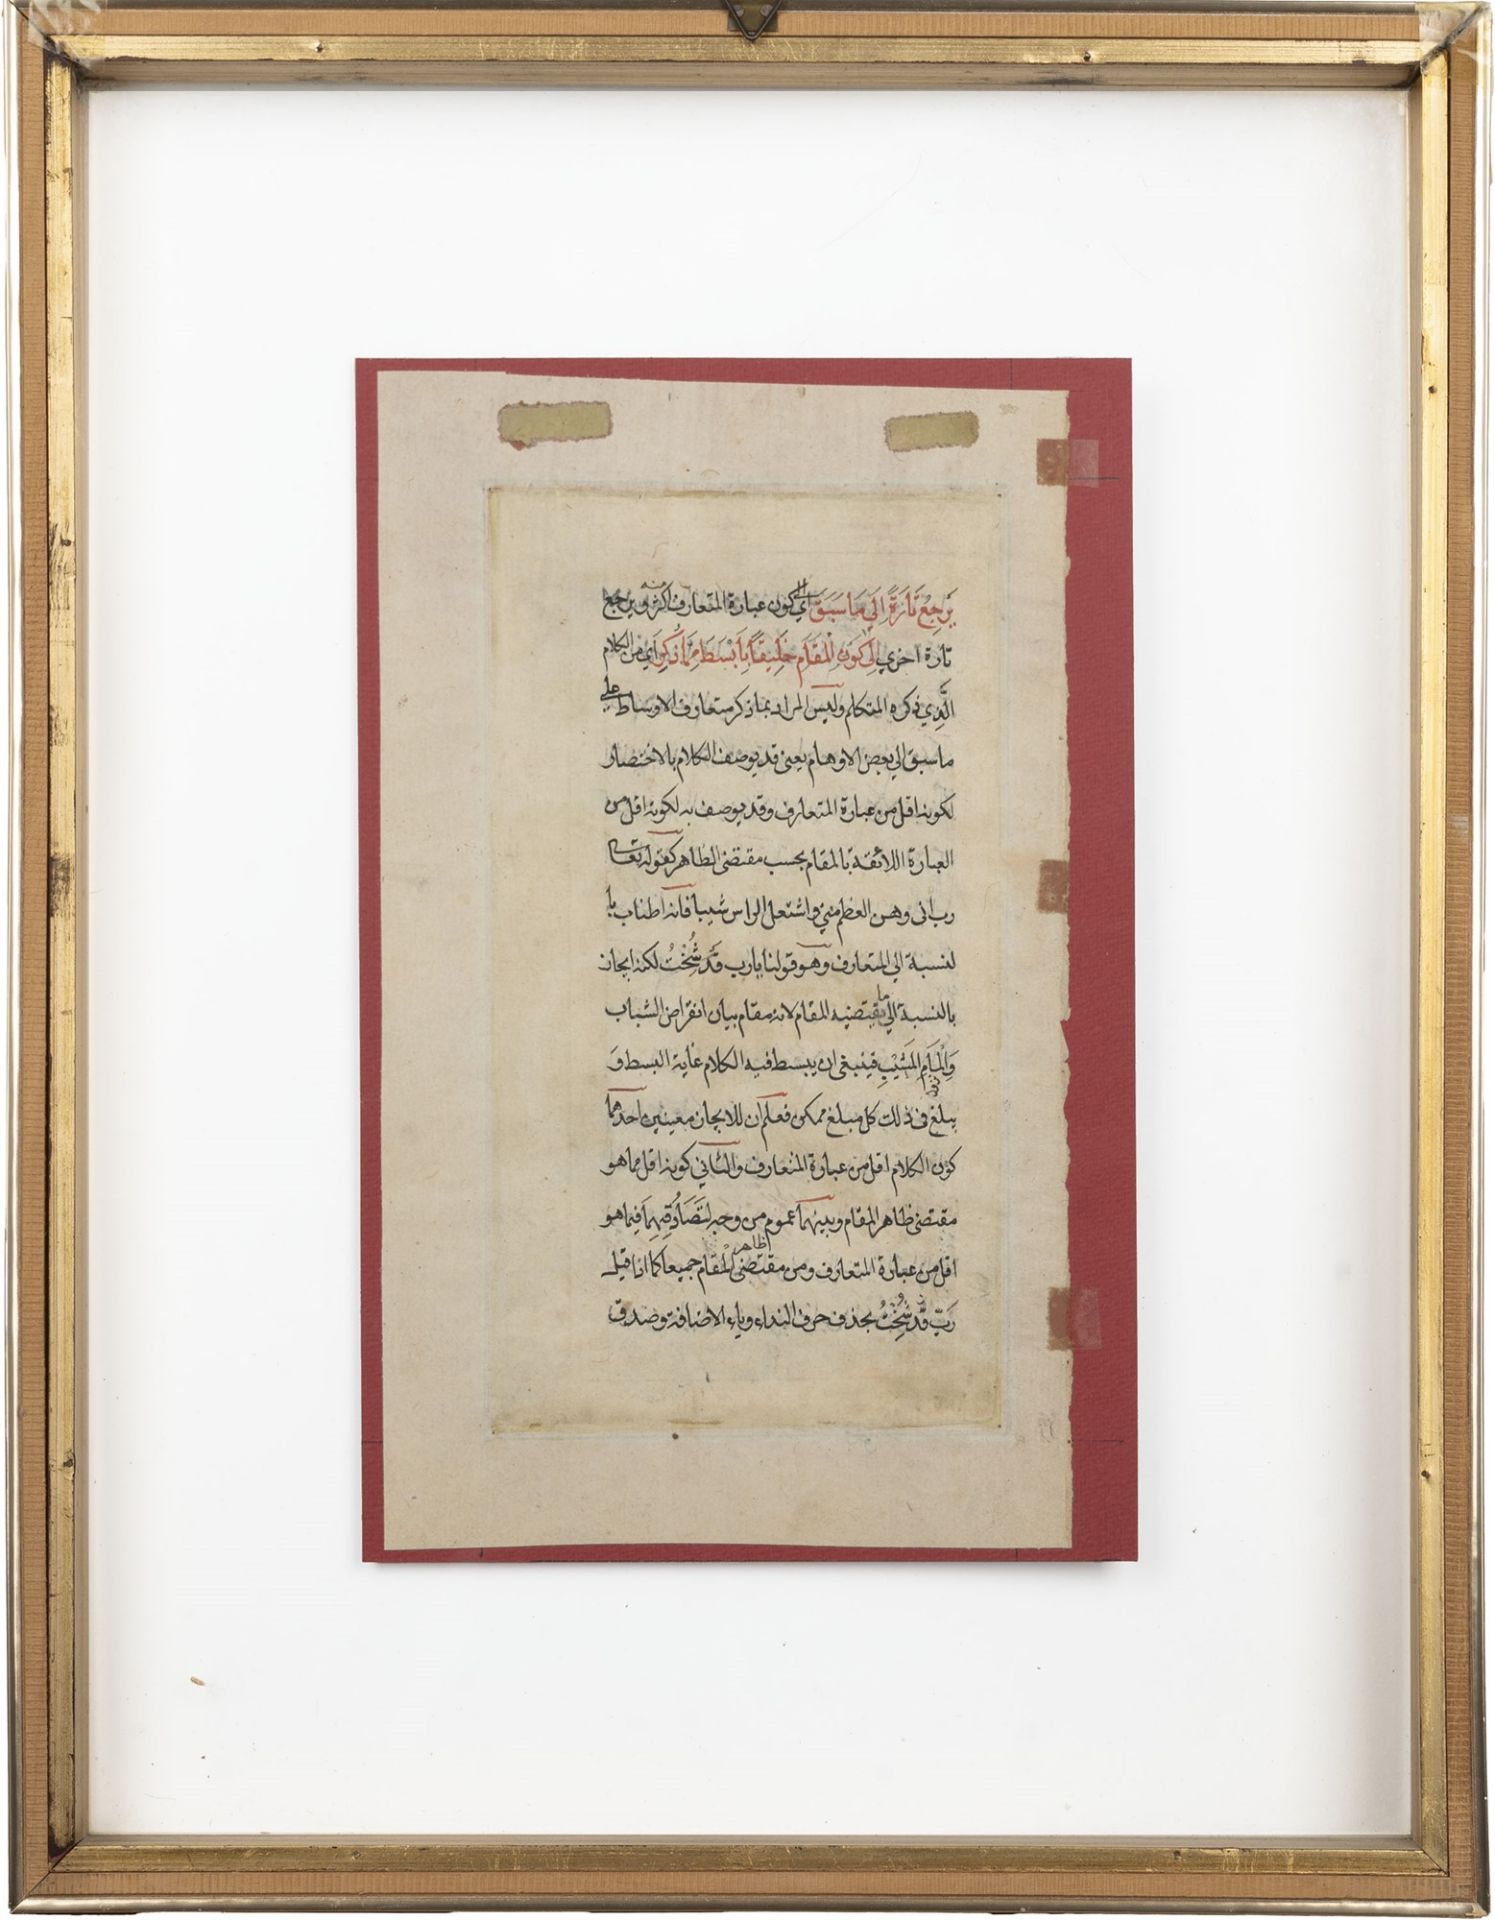 يَرجِعُ تَارَةً اِلَي مَا سَبَقَ اي الي كون عبارة المتعارف اكثر منه ويرجع
تارة اخري اِلَي كَوْنِ الْمَقَامِ خَلِيقاً بِاَبْسَطَ مِمَّا ذُكِرَ اي من الكلام
الَّذِي ذكره المتكلم وليس المراد بما ذكر متعارف الاوساط علي
ما سبق الي بعض الاوهام يعني قد يوصف الكلام بالاختصار
لكونه اقل من عبارة المتعارف وقد يوصف به لكونه اقل من
العبارة اللائقة بالمقام بحسب مقتضي الظاهر كقوله تعالي
رب اني وهن العظم مني واشتعل الراس شيبا فانه اطناب با
لنسبة الي المتعارف وهو قولنا يارب قَد شُِخْتُ لكنه ايجاز
بالنسبة الي ما يقتضيه المقام لانه مقام بيان انقراض الشباب
وَاِلْمَامِ الْمَشِيْبِ فينبغي ان يبسط فيه الكلام غاية البسط وَ
يبلغ في ذلك كل مبلغ ممكن فعلم ان للايجاز معنيين احدهما
كون الكلام اقل من عبارة المتعارف والثاني كونه اقل مما هو
مقتضي ظاهر المقام وبينهما عموم من وجه لِتَصَادُقِهِمَا فيما هو
اقل من عبارة المتعارف ومن مقتضي ظاهر المقام جميعا كما اذا قيل
رَبِّ قَد شُِخْتُ بحذف حرف النداء وياء الاضافة وصدق